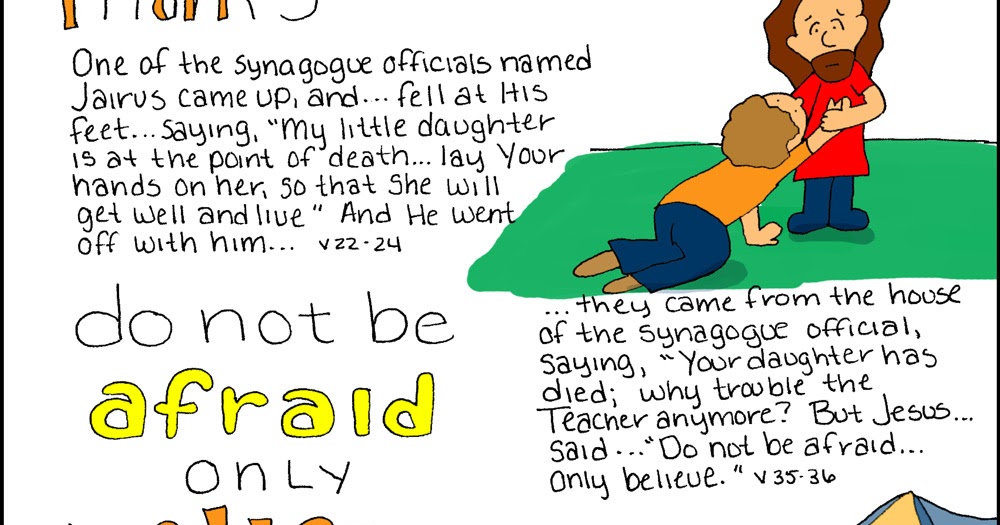 One of the synagogue officials named
Jairus came up, and... fell at His
feet... saying, "My little daughter
is at the point of death... lay Your
hands on her, so that she will
get well and live" And He went
off with him... v22-24
do not be
afraid
only
...they came from the house
of the synagogue official,
saying, "Your daughter has
died; why trouble the
Teacher anymore? But Jesus...
said... "Do not be afraid...
only believe." v35-36